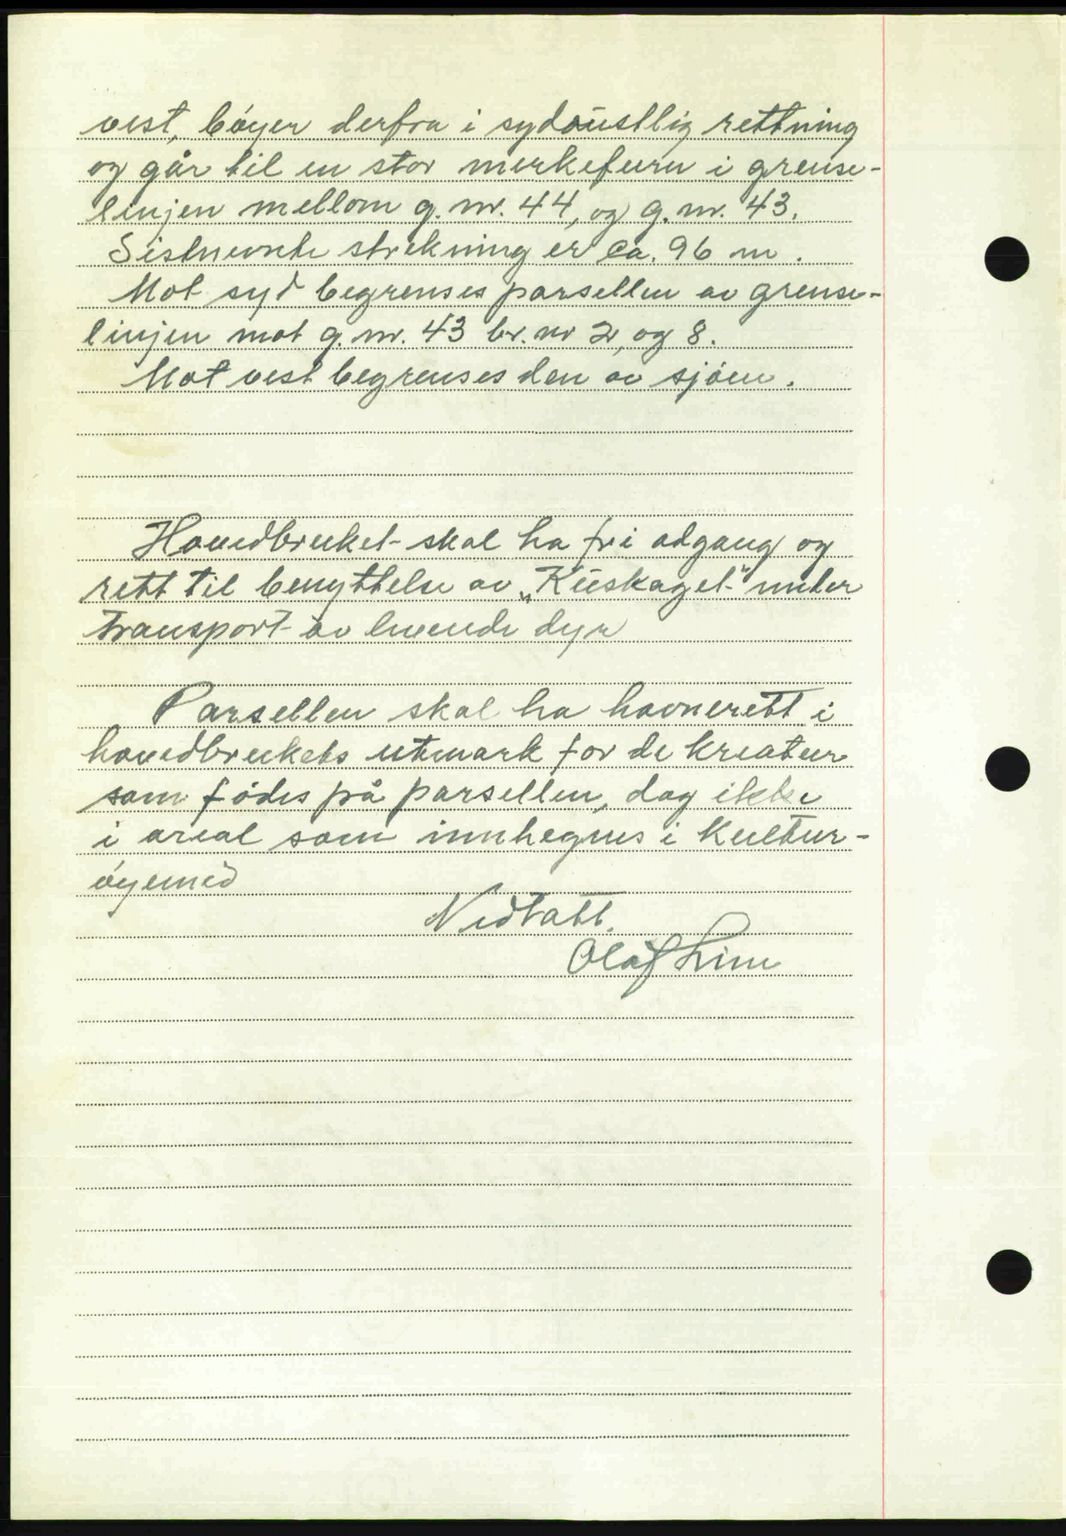 vest, bøyer derfra i sydaustlig rettning
og går til en stor merkefuru i grense-
linjen mellom g. nr. 44, og g. nr. 43.
Sistnevnte strekning er ca. 96 m.
Mot syd begrenses parsellen av grense-
linjen mot g. nr. 43 br. nr 2, og 8.
Mot vest begrenses den av sjøen.
Hovedbruket skal ha fri adgang og
rett til benyttelse av „Kuskaget" under
transport av levende dyr
Parsellen skal ha havnerett i
hovedbrukets utmark for de kreatur
som fødes på parsellen, dog ikke
i areal som innhegnes i kultur-
øyemed
Vedtatt.
Olaf Line